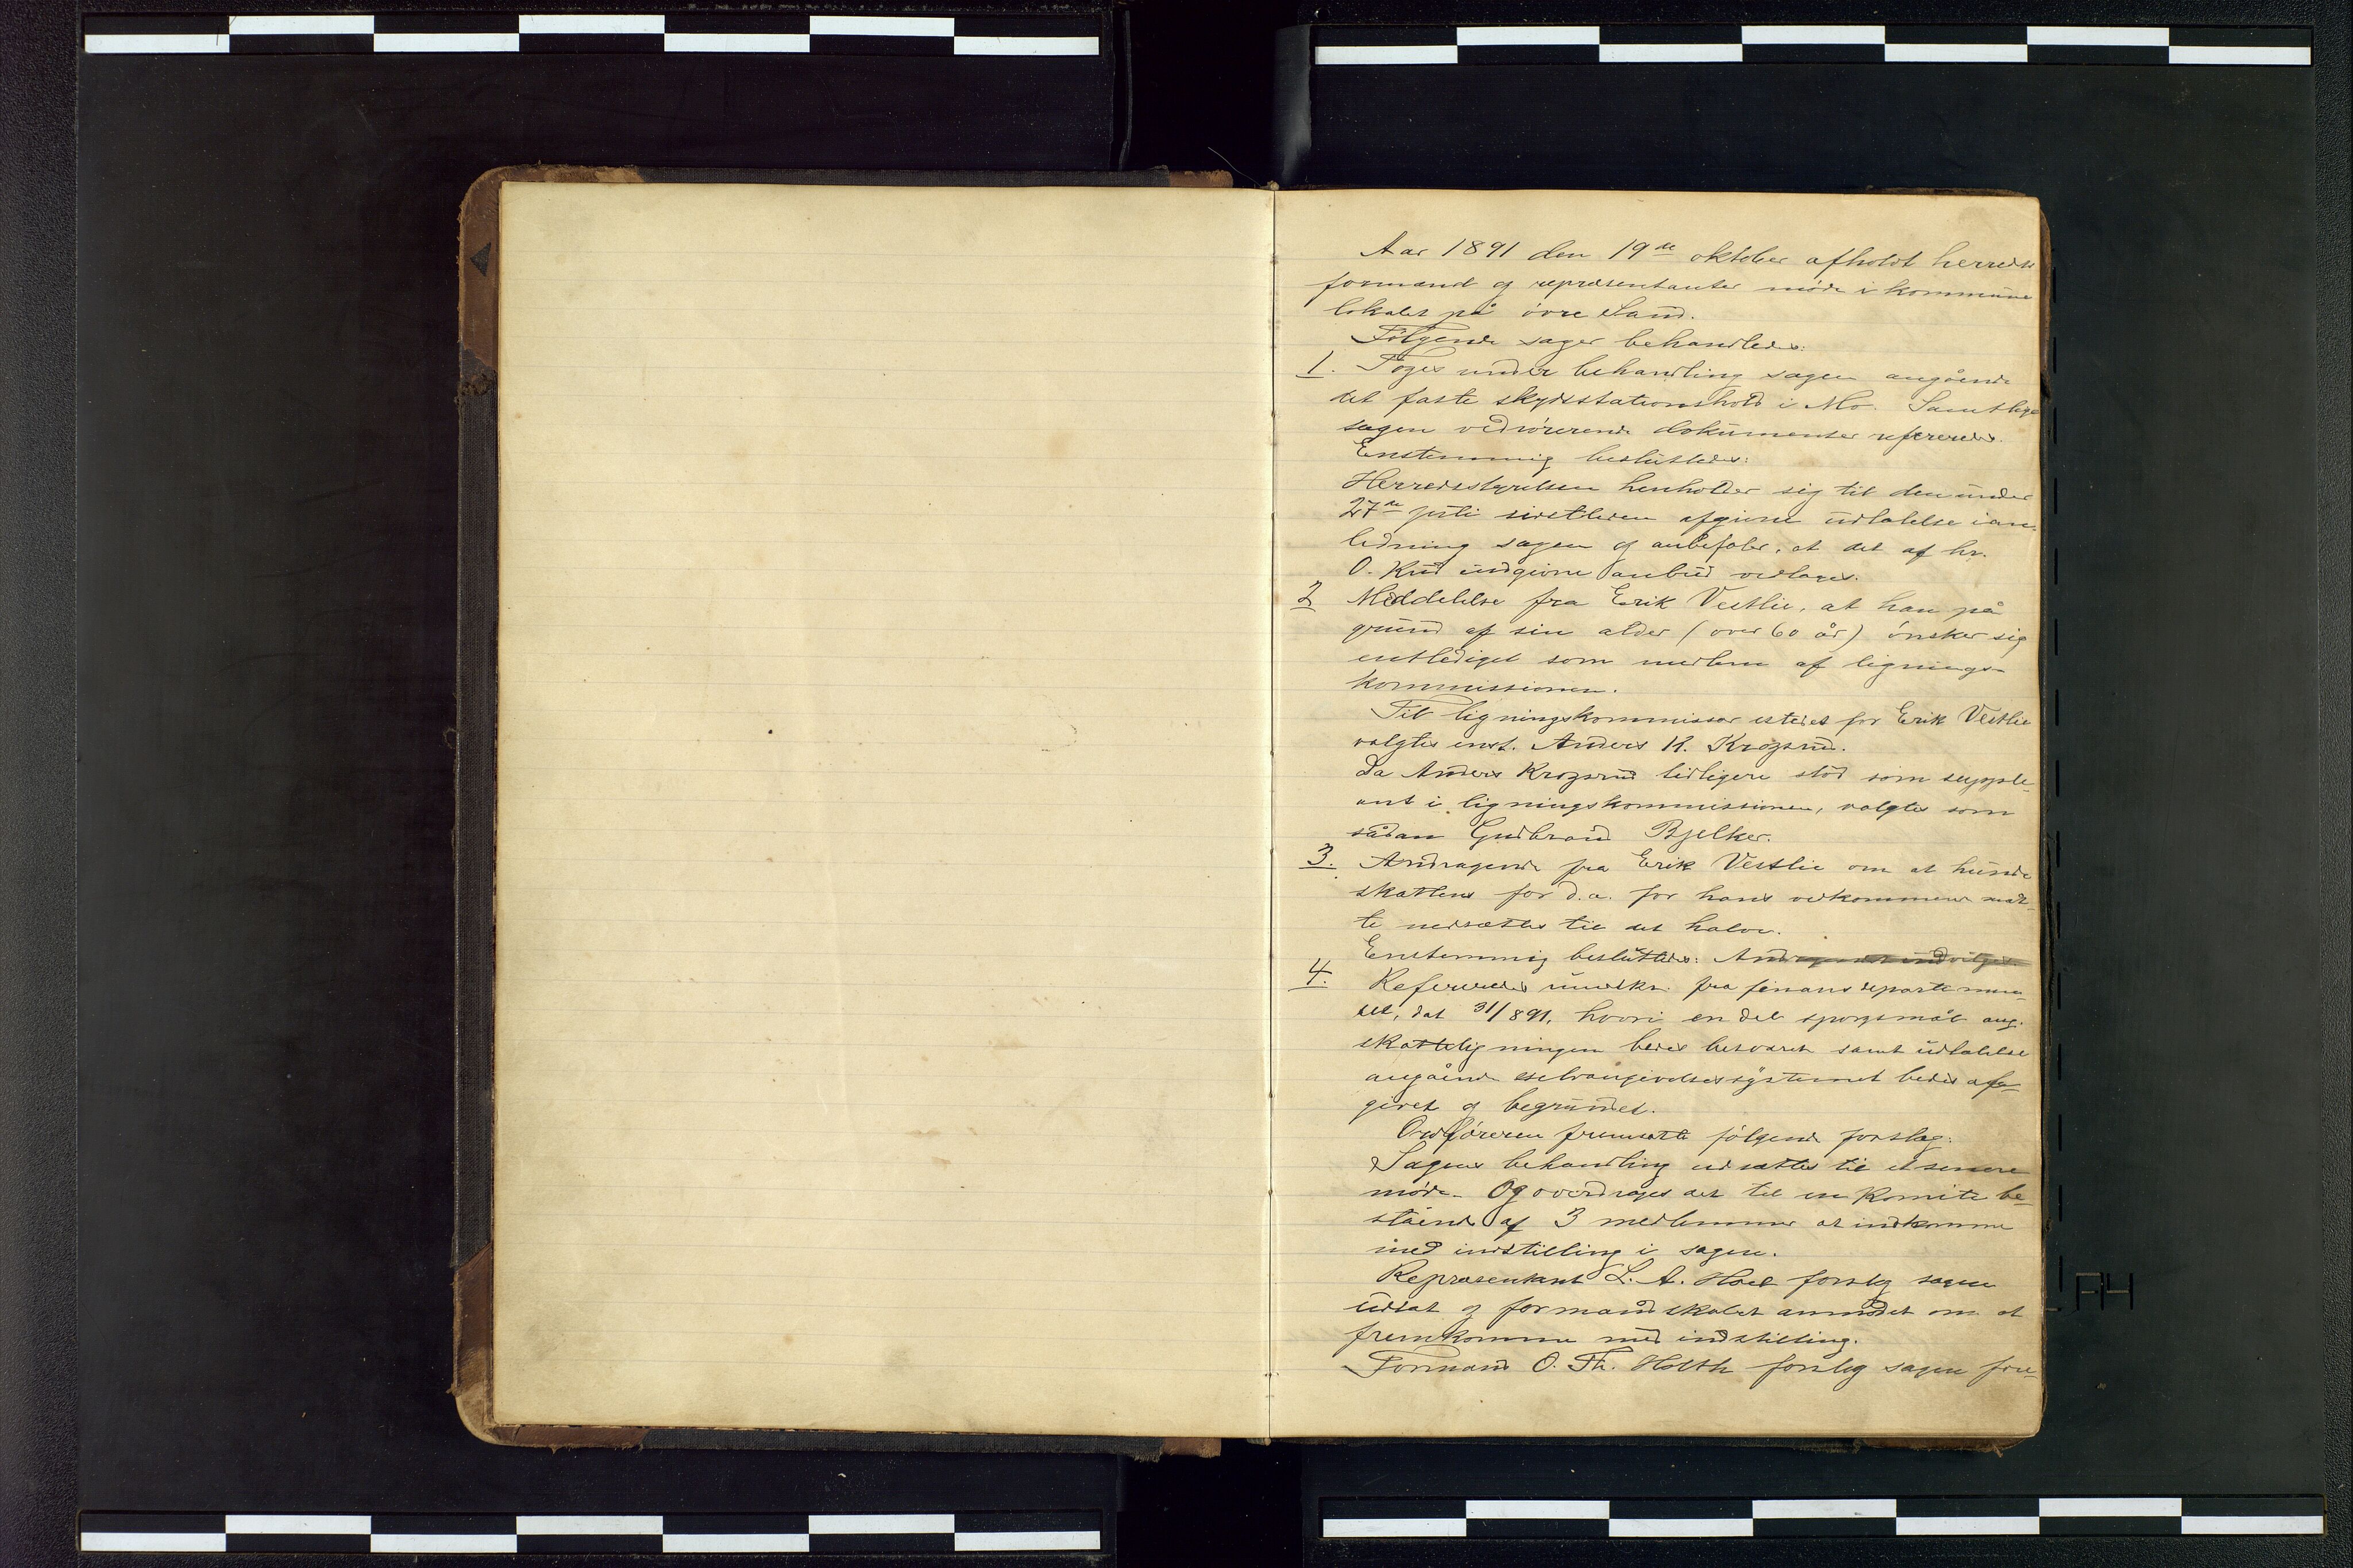 Aar 1891 den 19de oktober afholdt herreds
formænd og repræsentanter möde i kommune
lokalet på övre Sand.
Fölgende sager behandledes:
1. Toges under behandling sagen angående
det faste skydsstationshold i Mo. Samtlige
sagen vedrörende dokumenter refereredes.
Enstemmig besluttedes:
Herredsstyrelsen henholder sig til den under
27de juli sidstleden afgivne udtalelse i an-
ledning sagen og anbefaler, at det af hr.
O. Rud indgivne anbud vedtages.
2 Meddelelse fra Erik Vestlie, at han på
grund af sin alder (over 60 år) önsker sig
entlediget som medlem af lignings-
kommissionen.
Til ligningskommissær istedet for Erik Vestlie
valgtes enst. Anders K. Krogsrud.
Da Anders Krogsrud tidligere stod som supple-
ant i ligningskommissionen, valgtes som
sådan Gudbrand Bjelker.
3. Andragende fra Erik Vestlie om at hunde
skatten for d.a. for hans vedkommende måt-
te nedsættes til det halve.
Enstemmig besluttedes: Andragendet indvilges.
4. Refereredes rundskr. fra finansdepartemen-
tet, dat 31/8 91, hvori en del spørgsmål ang.
skatteligningen bedes besvaret samt udtalelse
angående selvangivelsessystemet bedes af-
givet og begrundet.
Ordföreren fremsatte fölgende forslag:
Sagens behandling udsættes til et senere
möde. Og overdrages det til en komite be-
stående af 3 medlemmer at indkomme
med indstilling i sagen.
Repræsentant L. A. Hoel forslog sagen
udsat og formandskabet anmodet om at
fremkomme med indstilling.
Formand O. Th. Holth forslog sagen fore-